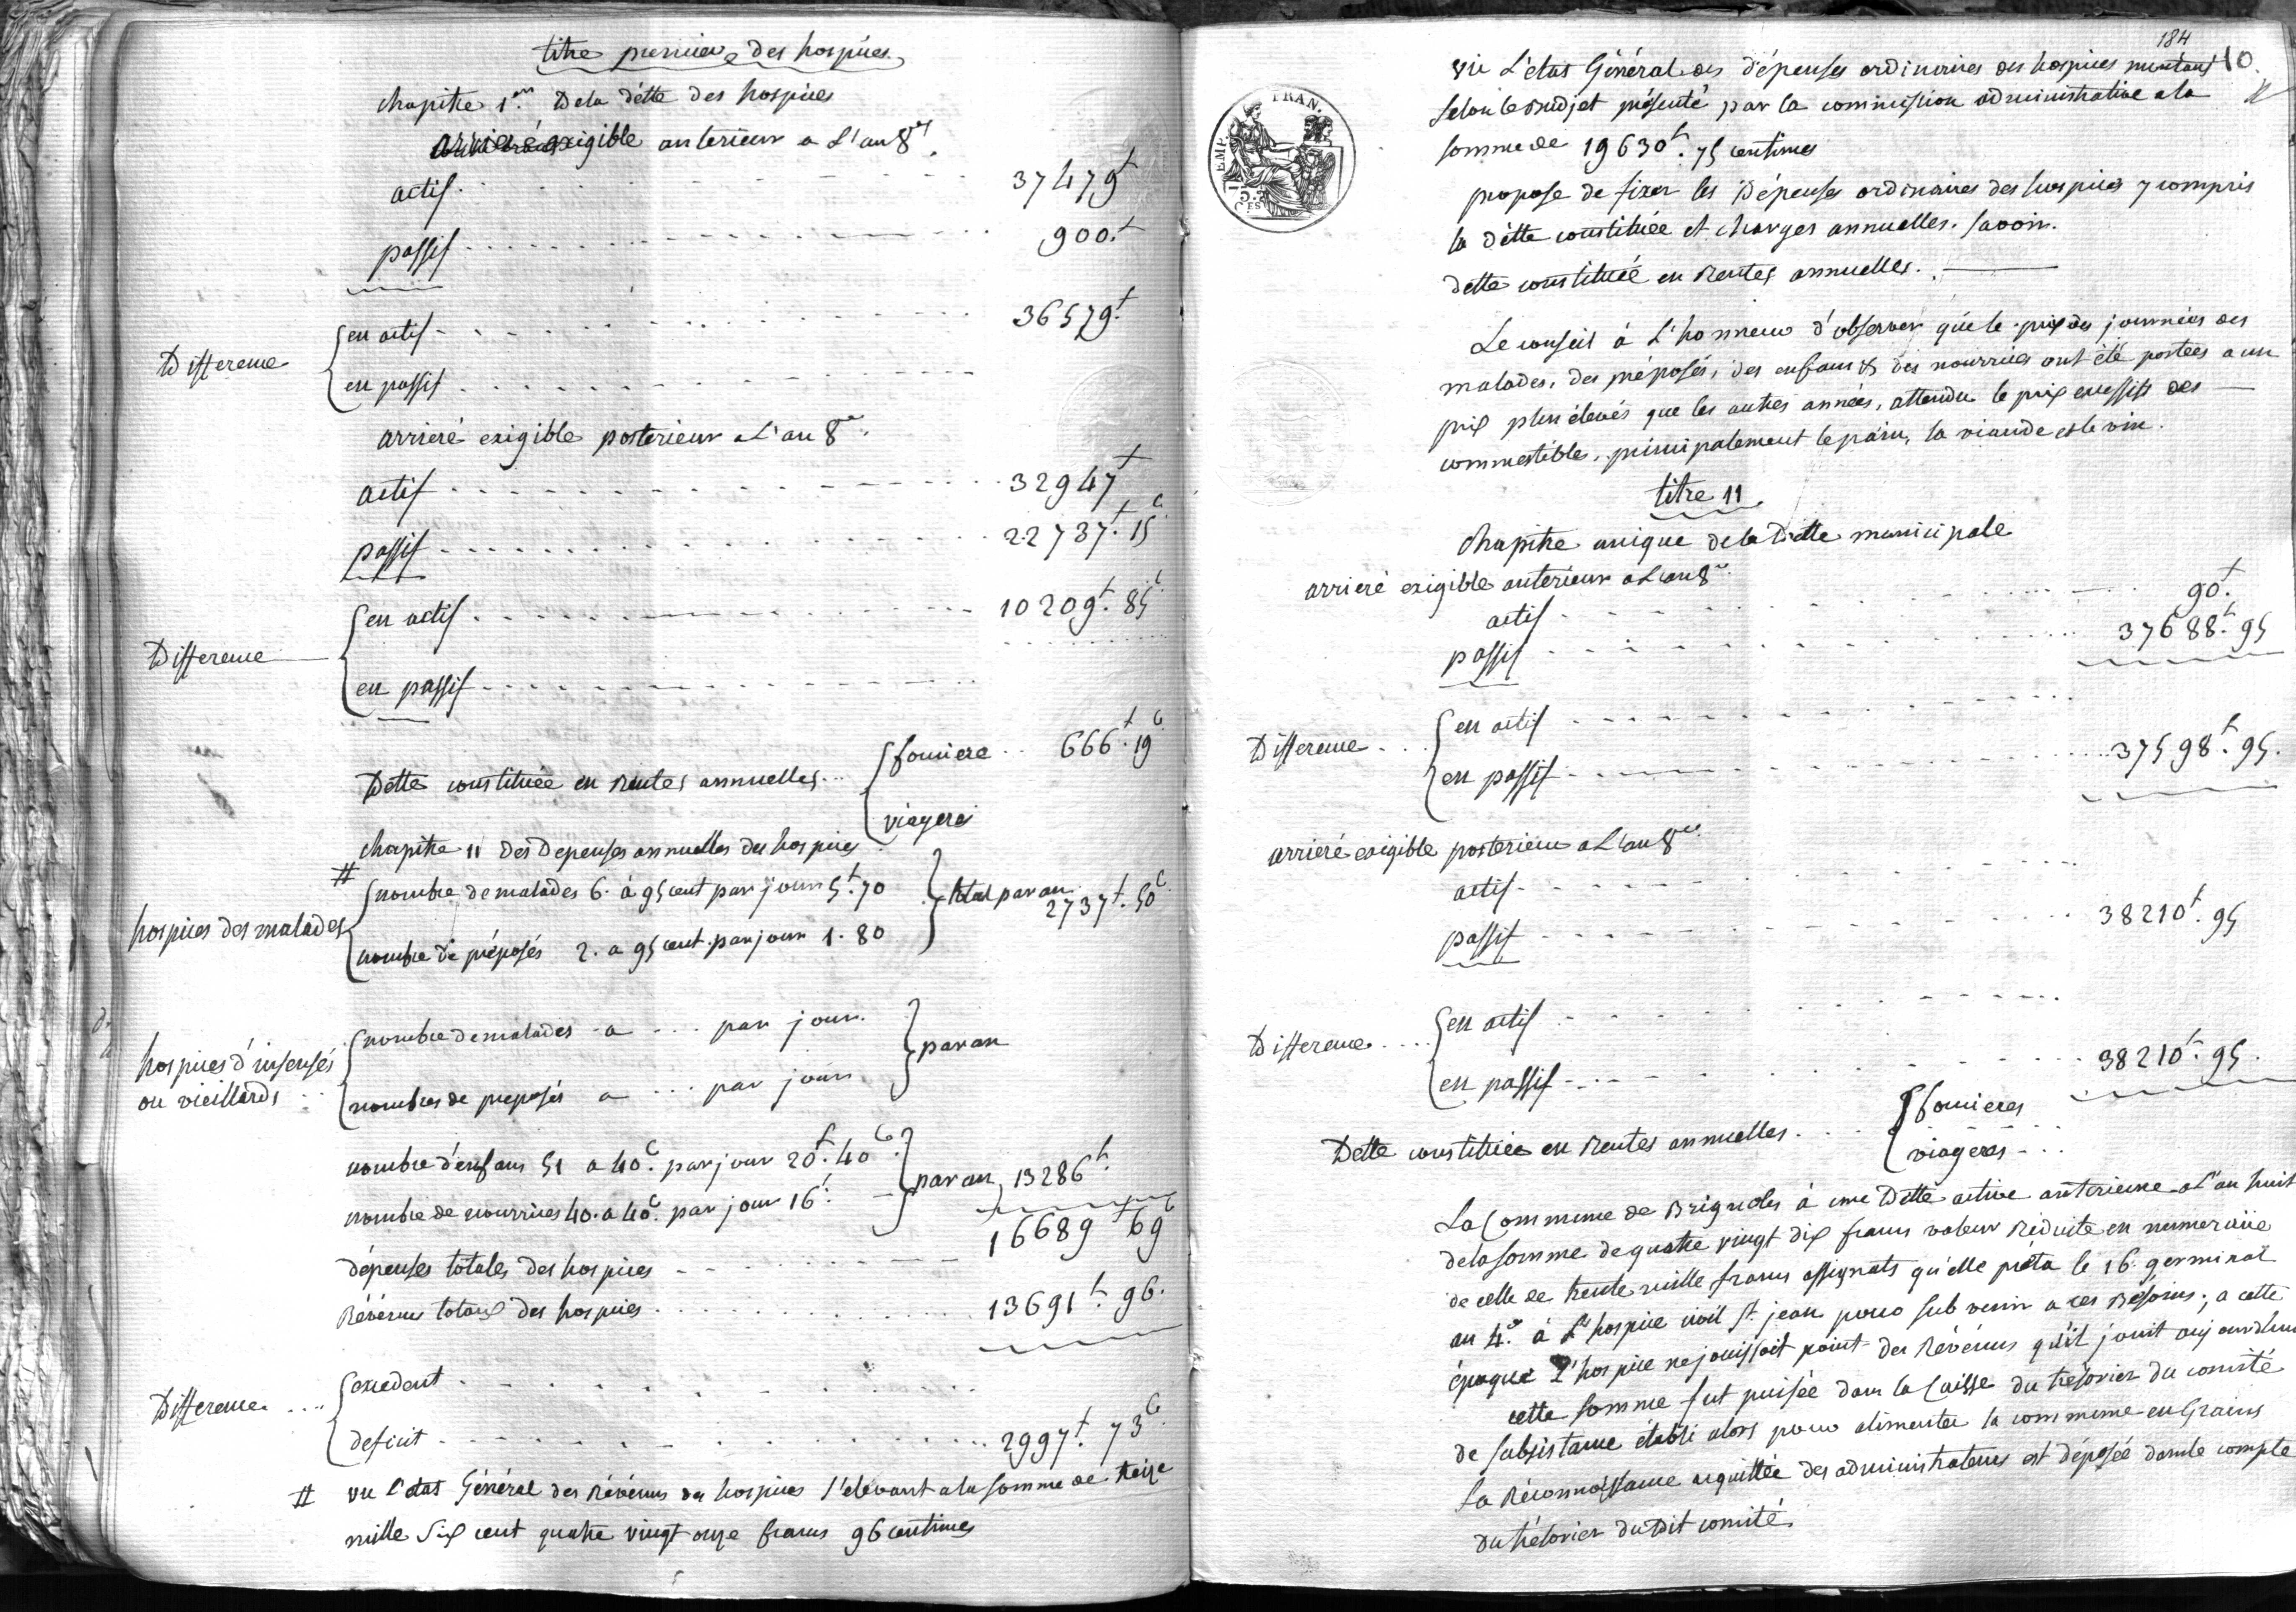 titre premier des hospices
chapitre 1er De la dette des hospices
arrieré exigible anterieur a L'an 8e
actif 37479t
passif 900t
Difference en actif 36579t
en passif
arrieré exigible posterieur a L'an 8e
actif 32947t
passif 22737t. 15c
Difference en actif 10209t. 85c
en passif
Dette constituée en Rentes annuelles foncière 666t. 19c
viageres
chapitre 11 Des Depenses annuelles des hospices
#
hospices des malades nombre de malades 6. à 95 cent par jour 5t. 70 total par an
2737t. 50c
nombre de préposés 2. a 95 cent. par jour 1. 80
hospices d'insensés nombre de malades a par jour par an
ou vieillards nombres de préposés a par jour
nombre d'enfans 51 a 40c. par jour 20t. 40c par an 13286t
nombre de nourrices 40. a 40c. par jour 16t
dépenses totales des hospices 16689t 69c
Révénus totaux des hospices 13691t. 96.
Difference excedent
deficit 2997t. 73c
# vu L'etat Général des Révénus des hospices s'élevant a la somme de treize
mille Six cent quatre vingt onze francs 96 centimes
184
10
vu L'etat Général des dépenses ordinaires des hospices montant
selon le Budjet présenté par la commission administrative a la
somme de 19630t. 75 centimes
propose de fixer les Dépenses ordinaires des hospices y compris
la dette constituée et charges annuelles. savoir.
dette constituée en Rentes annuelles.
FRAN.
EMP.
75
C.ES
Le conseil à L'honneur d'observer que le prix des journées des
malades, des préposés, des enfans & des nourrices ont été portées a un
prix plus élevés que les autres années, attendu le prix excessifs des
commestibles, principalement le pain, la viande et le vin.
titre 11
chapitre unique de la Dette municipale
arrieré exigible anterieur a L'an 8e
actif 90t.
passif 37688t. 95
Difference en actif
en passif 37598t. 95.
arrieré exigible posterieur a L'an 8e
actif
passif 38210t. 95
Difference en actif
en passif 38210t. 95.
Dette constituée en Rentes annuelles foncieres
viageres
La Commune de Brignoles à une Dette active anterieure a L'an huit
de la somme de quatre vingt dix francs valeur Réduite en numeraire
de celle de trente mille francs assignats qu'elle preta le 16. germinal
an 4e. à L'hospice civil St. jean pour subvenir a ces Besoins; a cette
époque L'hospice ne jouissoit point des Révénus qu'il jouit aujourdhui
cette somme fut puisée dans la Caisse du trésorier du comité
de subsistance établi alors pour alimenter la commune en Grains
La Réconnaissance acquittée des administrateurs est déposée dans le compte
du trésorier du Dit comité.